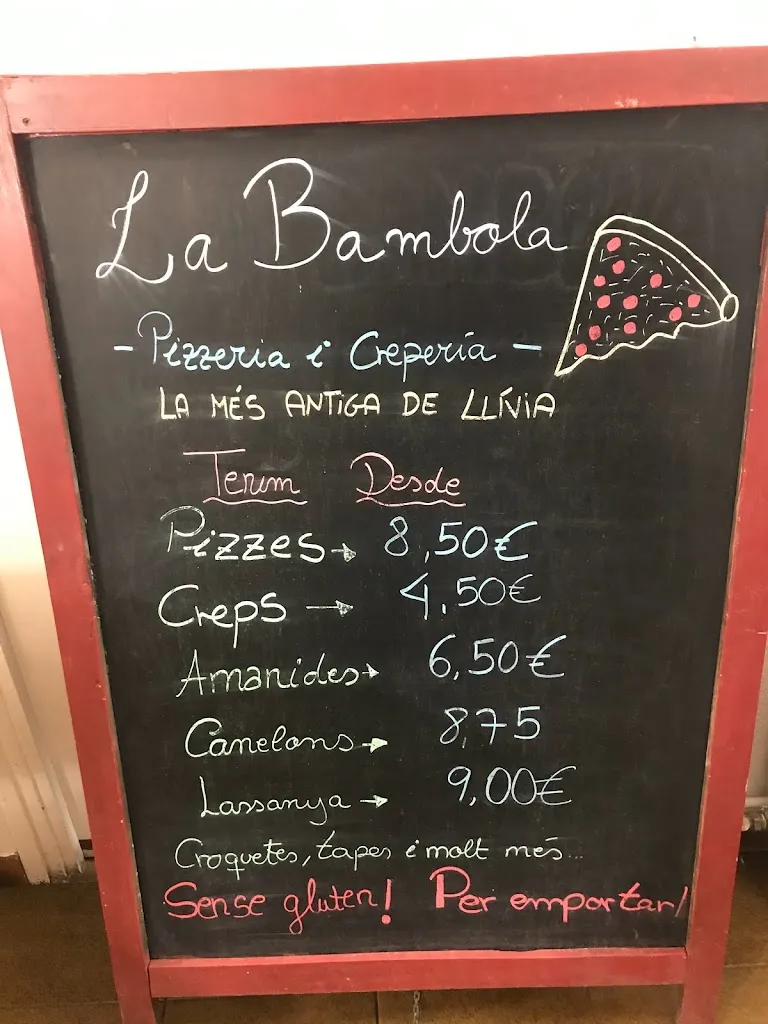 La Bambola
- Pizzeria i Creperia -
LA MÉS ANTIGA DE LLÍVIA
Tenim Desde
Pizzes → 8,50€
Creps → 4,50€
Amanides → 6,50€
Canelons → 8,75
Lassanya → 9,00€
Croquetes, tapes i molt més...
Sense gluten! Per emportar!